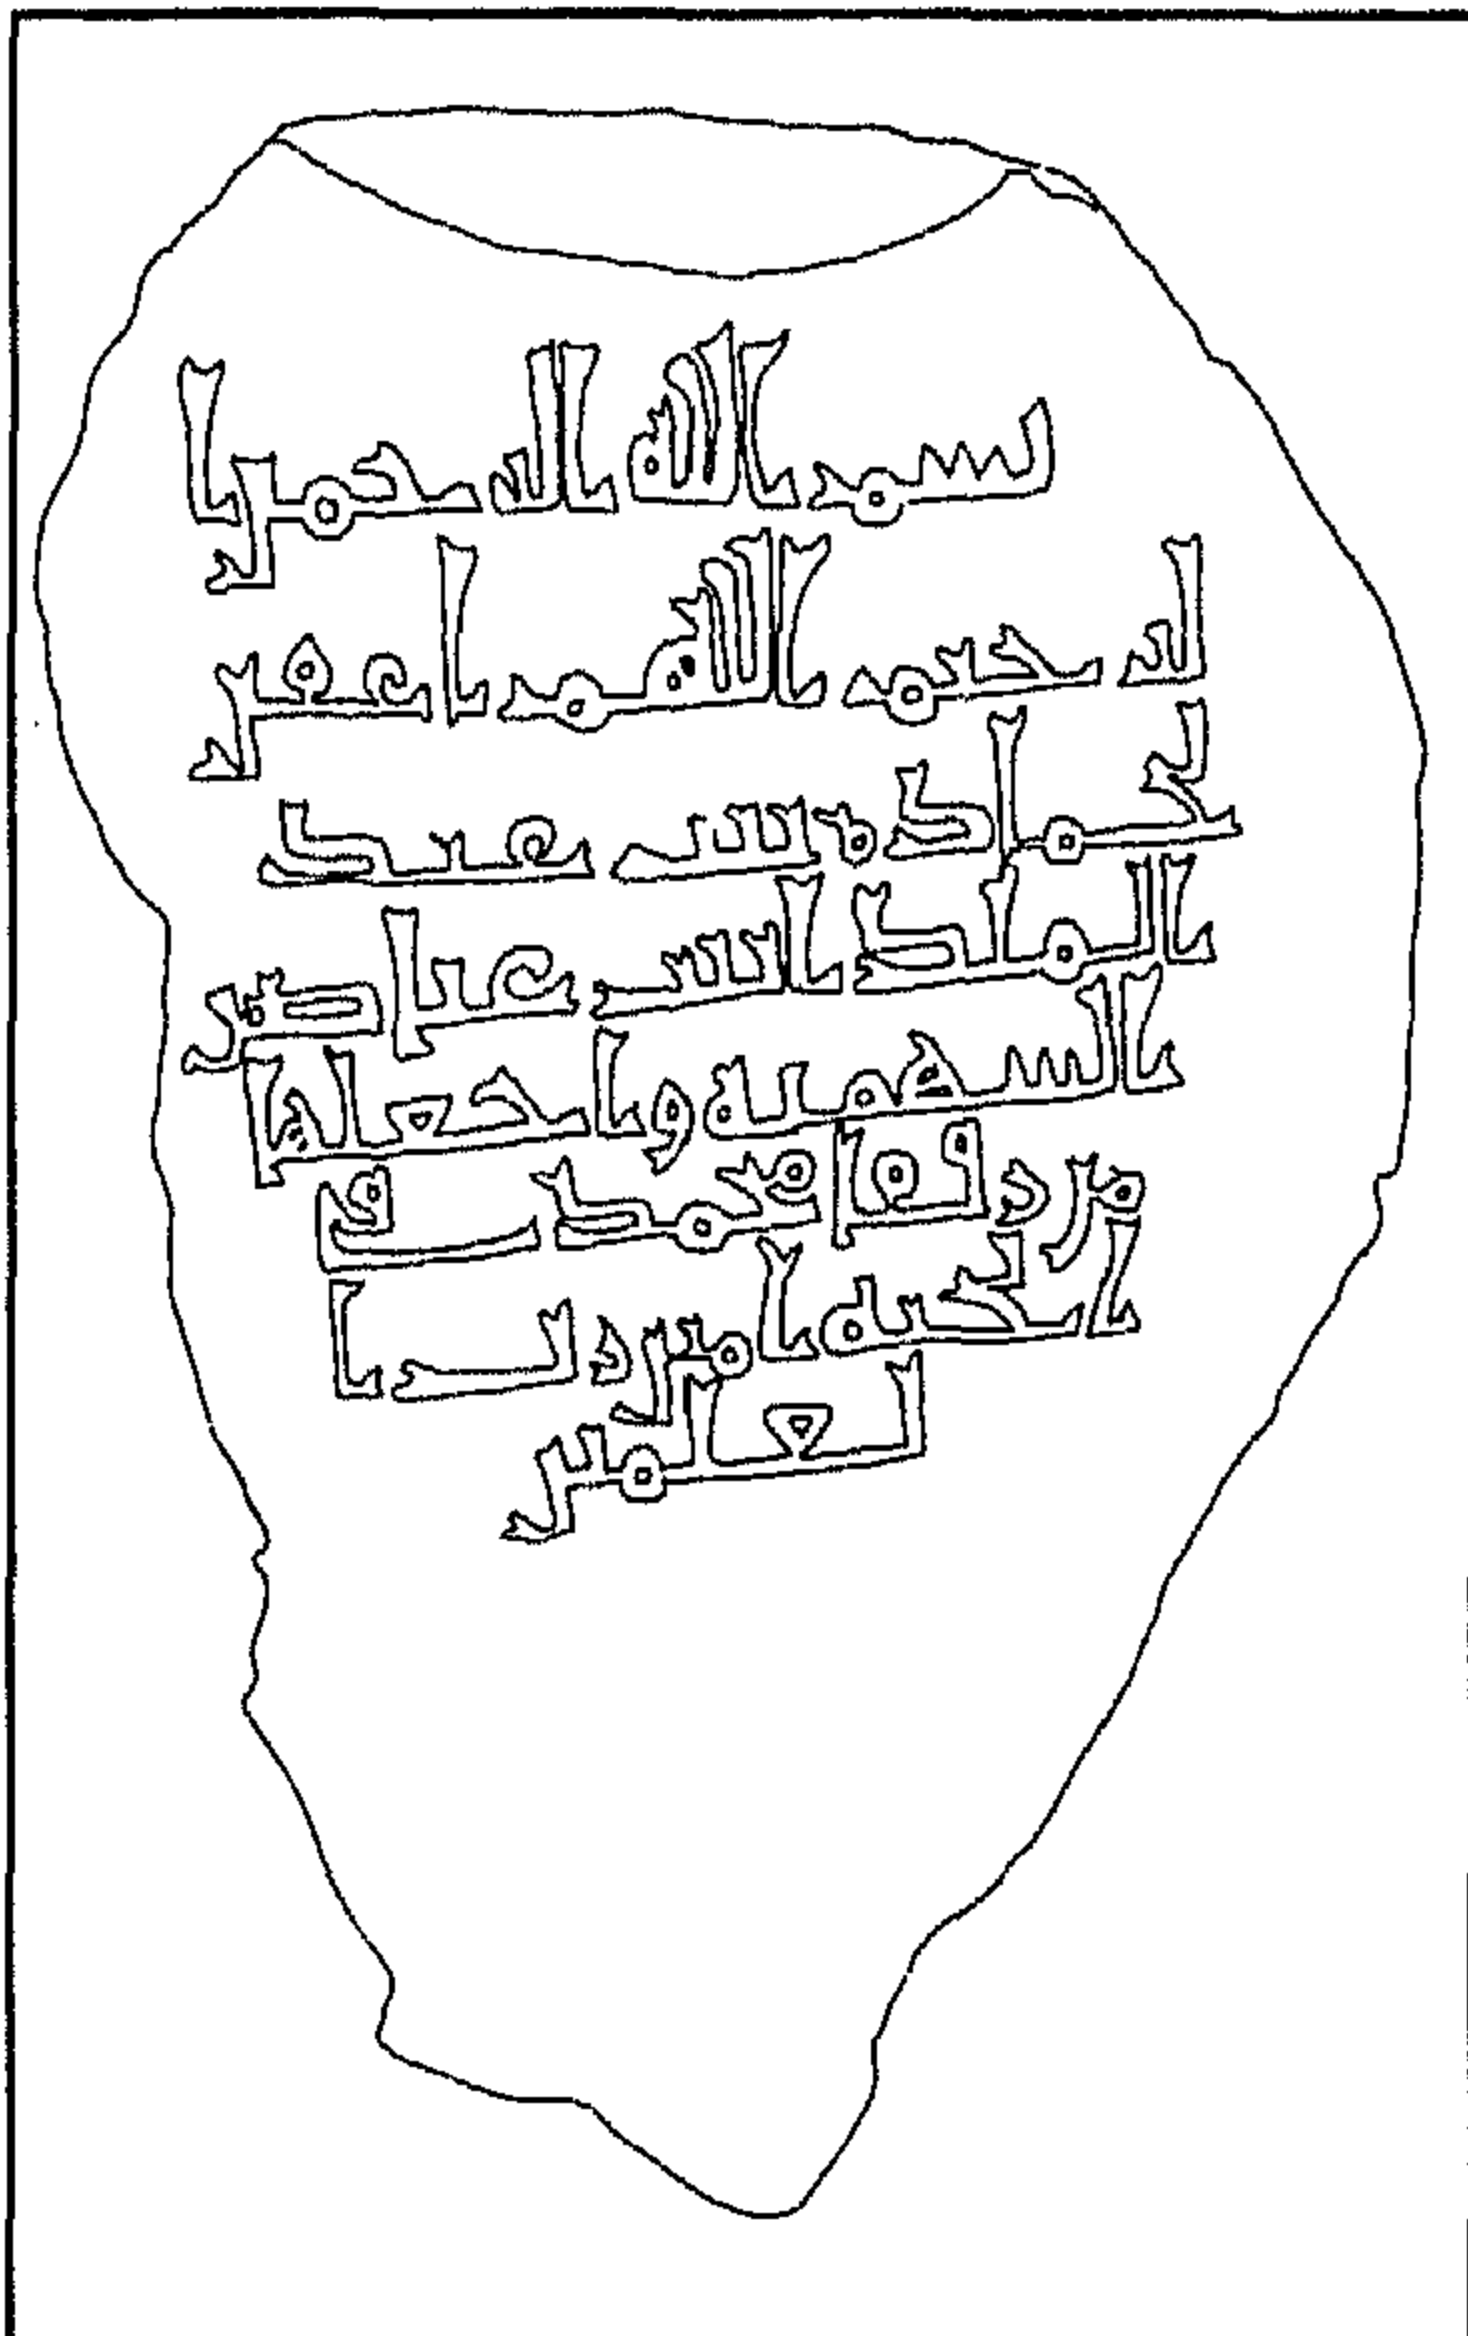 بسم الله الرحمن ا
لرحيم اللهم اغفر
لحماده بنت عبد
الملك ابنت عياض
السهميه واجعلها
من رفقا محمد في
الجنه امين رب ا
لعلمين